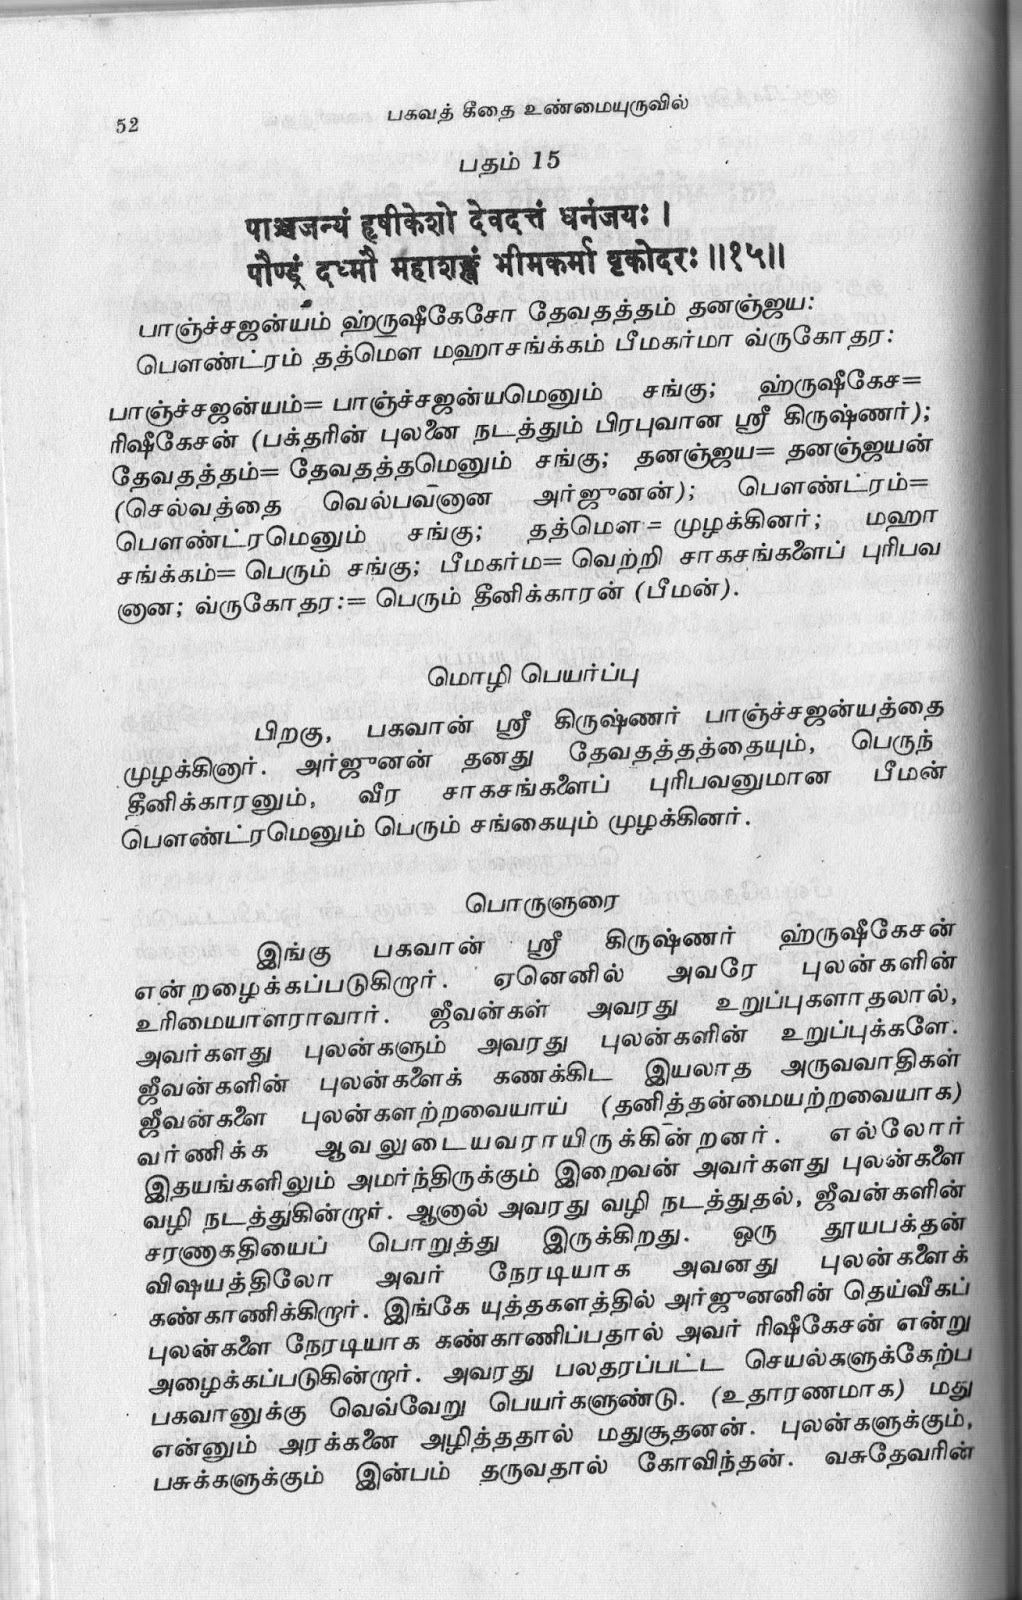 52
பகவத் கீதை உண்மையுருவில்
பதம் 15
पाञ्चजन्यं हृषीकेशो देवदत्तं धनंजयः ।
पौण्ड्रं दध्मौ महाशङ्खं भीमकर्मा वृकोदरः ॥१५॥
பாஞ்ச்சஜன்யம் ஹ்ருஷீகேசோ தேவதத்தம் தனஞ்ஜய:
பௌண்ட்ரம் தத்மௌ மஹாசங்க்கம் பீமகர்மா வ்ருகோதர:
பாஞ்ச்சஜன்யம்= பாஞ்ச்சஜன்யமெனும் சங்கு; ஹ்ருஷீகேச=
ரிஷீகேசன் (பக்தரின் புலனை நடத்தும் பிரபுவான ஸ்ரீ கிருஷ்ணர்);
தேவதத்தம்= தேவதத்தமெனும் சங்கு; தனஞ்ஜய= தனஞ்ஜயன்
(செல்வத்தை வெல்பவனான அர்ஜுனன்); பௌண்ட்ரம்=
பௌண்ட்ரமெனும் சங்கு; தத்மௌ= முழக்கினர்; மஹா
சங்க்கம்= பெரும் சங்கு; பீமகர்ம= வெற்றி சாகசங்களைப் புரிபவ
னான; வ்ருகோதர:= பெரும் தீனிக்காரன் (பீமன்).
மொழி பெயர்ப்பு
பிறகு, பகவான் ஸ்ரீ கிருஷ்ணர் பாஞ்ச்சஜன்யத்தை
முழக்கினார். அர்ஜுனன் தனது தேவதத்தத்தையும், பெருந்
தீனிக்காரனும், வீர சாகசங்களைப் புரிபவனுமான பீமன்
பௌண்ட்ரமெனும் பெரும் சங்கையும் முழக்கினர்.
பொருளுரை
இங்கு பகவான் ஸ்ரீ கிருஷ்ணர் ஹ்ருஷீகேசன்
என்றழைக்கப்படுகிறார். ஏனெனில் அவரே புலன்களின்
உரிமையாளராவார். ஜீவன்கள் அவரது உறுப்புகளாதலால்,
அவர்களது புலன்களும் அவரது புலன்களின் உறுப்புக்களே.
ஜீவன்களின் புலன்களைக் கணக்கிட இயலாத அருவவாதிகள்
ஜீவன்களை புலன்களற்றவையாய் (தனித்தன்மையற்றவையாக)
வர்ணிக்க ஆவலுடையவராயிருக்கின்றனர். எல்லோர்
இதயங்களிலும் அமர்ந்திருக்கும் இறைவன் அவர்களது புலன்களை
வழி நடத்துகின்றார். ஆனால் அவரது வழி நடத்துதல், ஜீவன்களின்
சரணாகதியைப் பொறுத்து இருக்கிறது. ஒரு தூயபக்தன்
விஷயத்திலோ அவர் நேரடியாக அவனது புலன்களைக்
கண்காணிக்கிறார். இங்கே யுத்தகளத்தில் அர்ஜுனனின் தெய்வீகப்
புலன்களை நேரடியாக கண்காணிப்பதால் அவர் ரிஷீகேசன் என்று
அழைக்கப்படுகின்றார். அவரது பலதரப்பட்ட செயல்களுக்கேற்ப
பகவானுக்கு வெவ்வேறு பெயர்களுண்டு. (உதாரணமாக) மது
என்னும் அரக்கனை அழித்ததால் மதுசூதனன். புலன்களுக்கும்,
பசுக்களுக்கும் இன்பம் தருவதால் கோவிந்தன். வசுதேவரின்